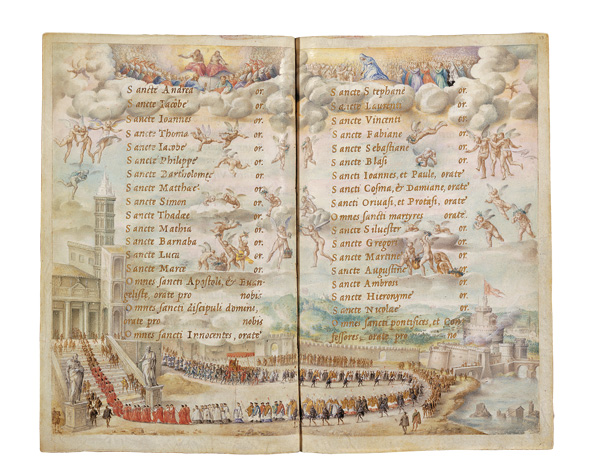 Sancte Andrea or.
Sancte Iacobe or.
Sancte Ioannes or.
Sancte Thoma or.
Sancte Iacobe or.
Sancte Philippe or.
Sancte Bartholomee or.
Sancte Matthaee or.
Sancte Simon or.
Sancte Thadae or.
Sancte Mathia or.
Sancte Barnaba or.
Sancte Luca or.
Sancte Marce or.
Omnes sancti Apostoli, & Euan-
geliste, orate pro nobis
Omnes sancti discipuli domini,
orate pro nobis
Omnes sancti Innocentes, orate
Sancte Stephane or.
Sancte Laurenti or.
Sancte Vincenti or.
Sancte Fabiane or.
Sancte Sebastiane or.
Sancte Blasi or.
Sancti Ioannes, et Paule, orate
Sancti Cosma, & Damiane, orate
Sancti Gruasi, et Protasi, orate
Omnes sancti martyres orate
Sancte Siluester or.
Sancte Gregori or.
Sancte Martine or.
Sancte Augustine or.
Sancte Ambrosi or.
Sancte Hieronyme or.
Sancte Nicolae or.
Omnes sancti pontifices, et Con
fessores, orate pro no